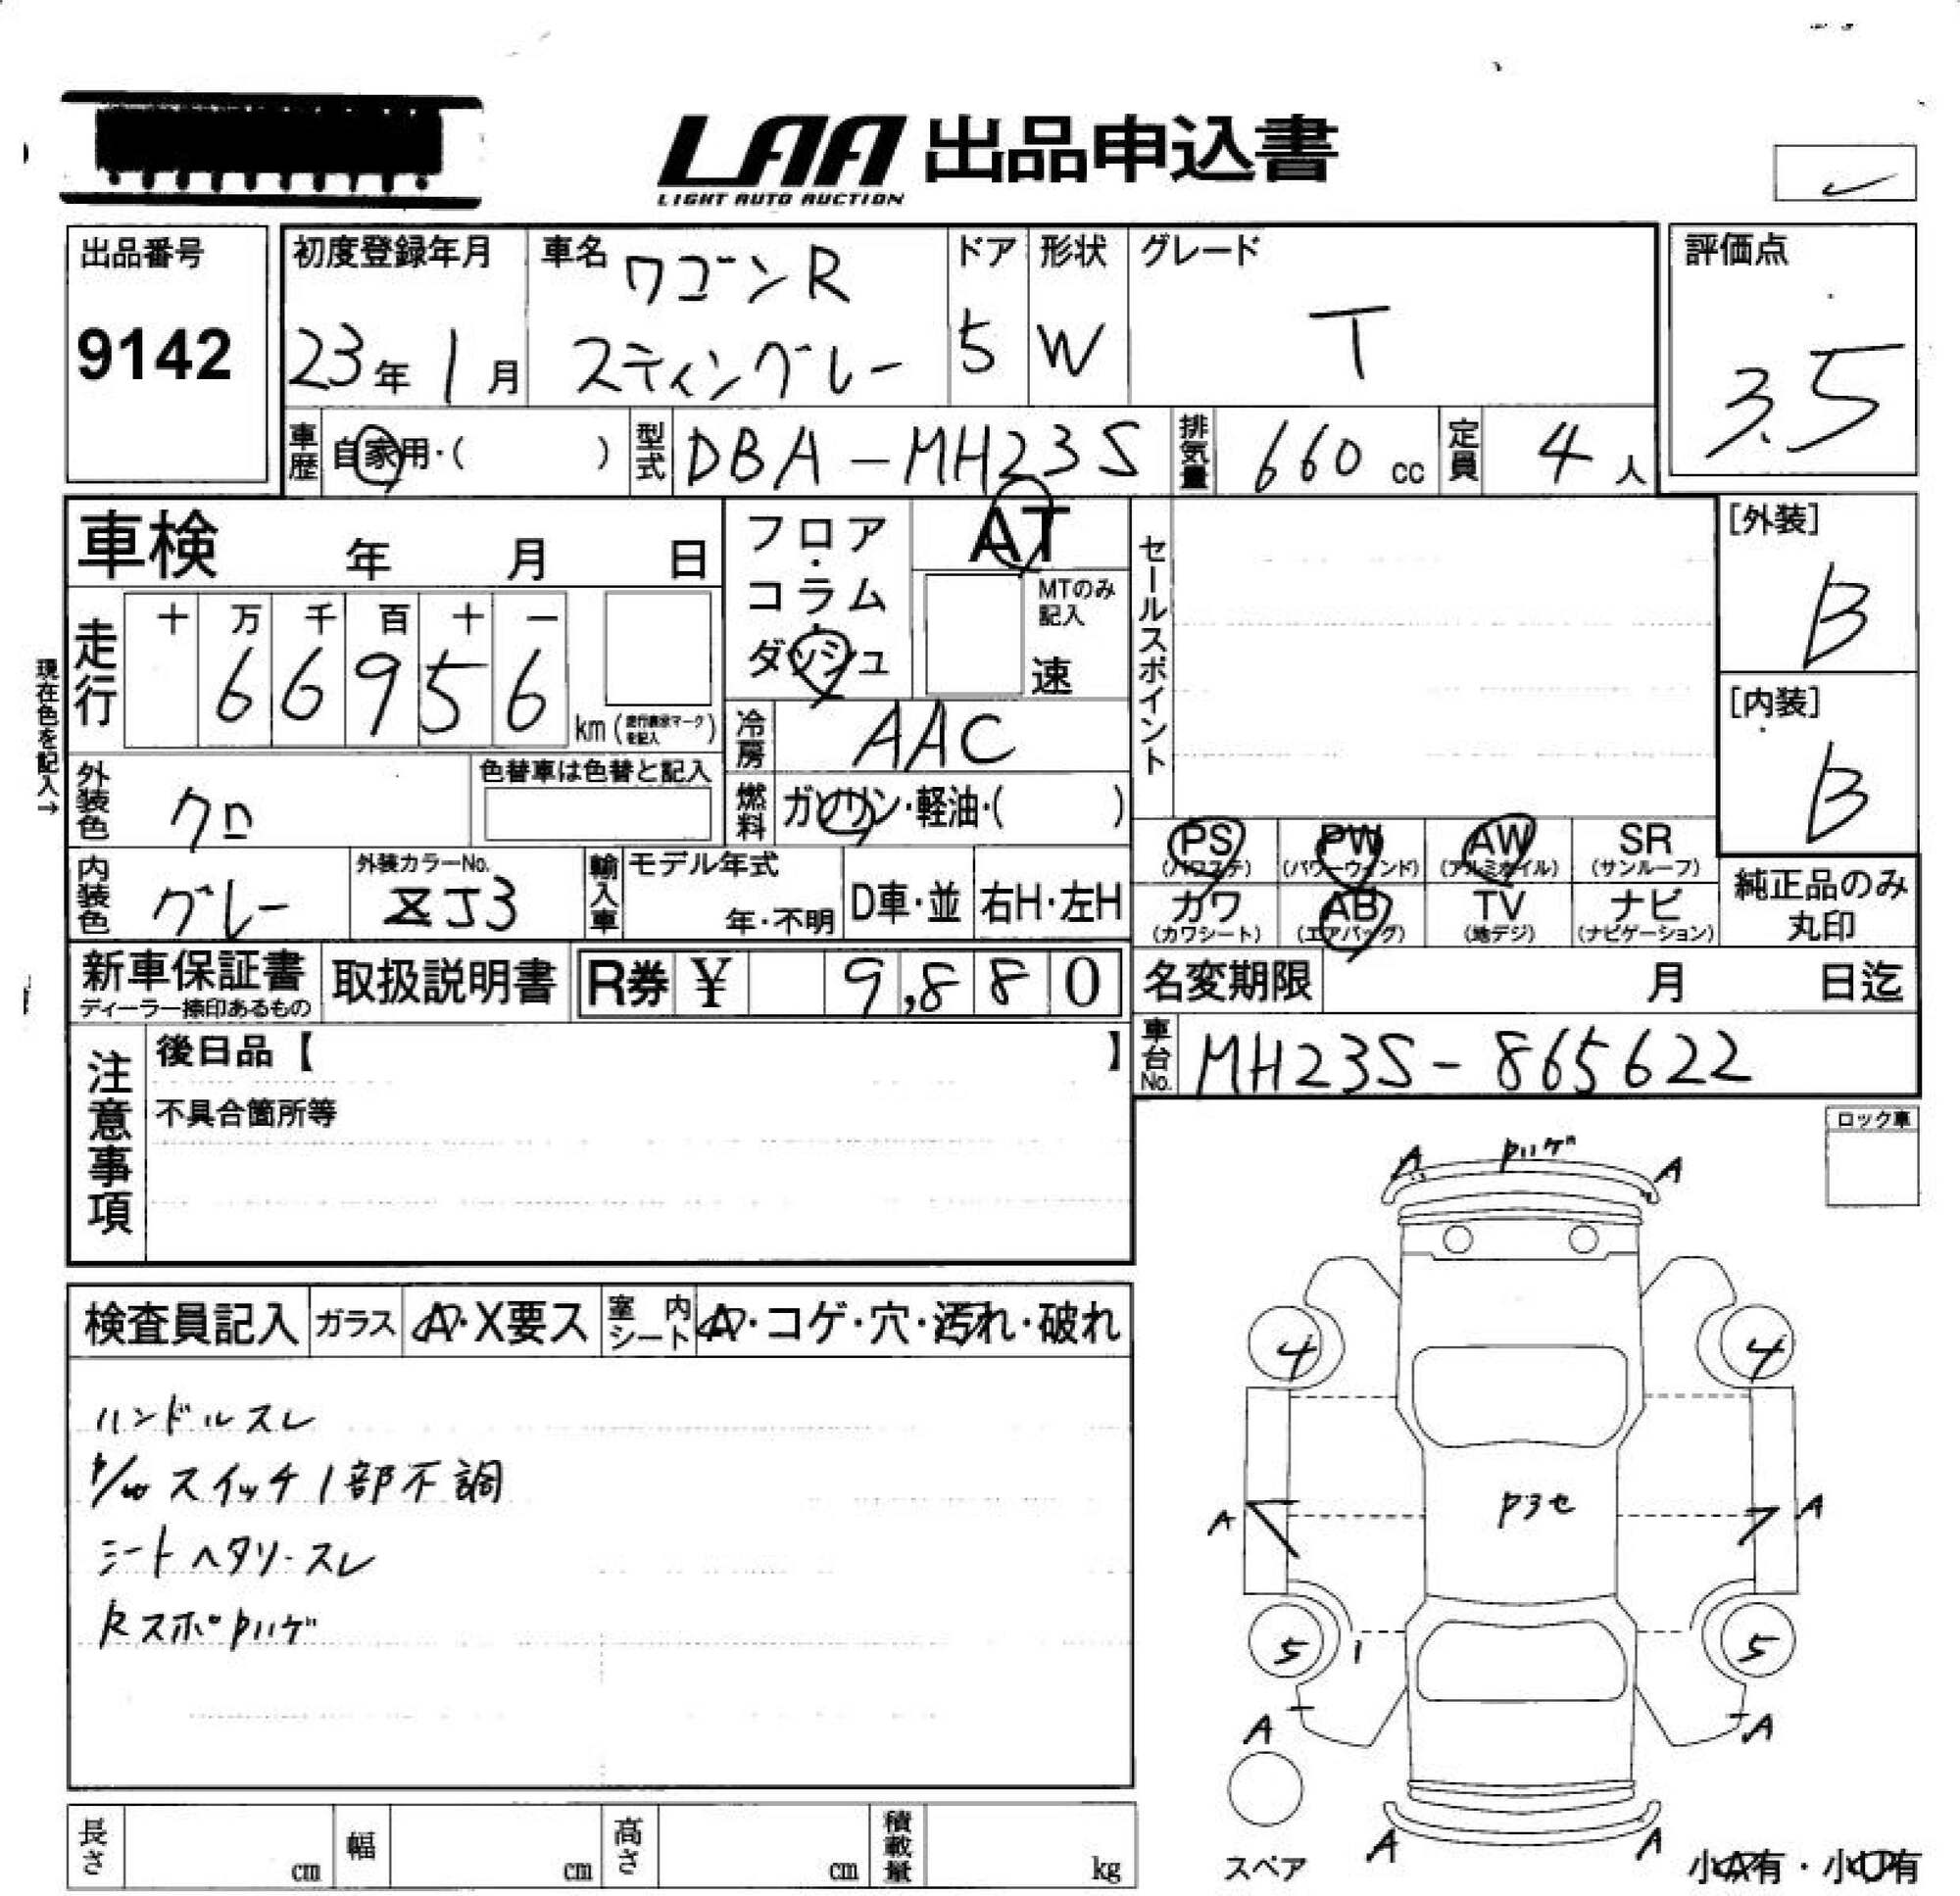 LAA 出品申込書
LIGHT AUTO AUCTION
出品番号
9142
初度登録年月
23年 1月
車名 ワゴンR
スティングレー
ドア
5
形状
W
グレード
T
評価点
3.5
車歴 自家用・( )
型式 DBA-MH23S
排気量 660 cc
定員 4人
車検 年 月 日
フロア・
コラム・
ダッシュ
AT
MTのみ
記入
速
セールスポイント
[外装]
B
[内装]
B
現在色を記入→
走行
十 万 千 百 十 一
6 6 9 5 6
km (走行表示マークを記入)
冷房 AAC
外装色 クロ
色替車は色替と記入
燃料 ガソリン・軽油・( )
PS (パワステ)
PW (パワーウィンド)
AW (アルミホイル)
SR (サンルーフ)
内装色 グレー
外装カラーNo.
ZJ3
輸入車
モデル年式
年・不明
D車・並
右H・左H
カワ (カワシート)
AB (エアバッグ)
TV (地デジ)
ナビ (ナビゲーション)
純正品のみ
丸印
新車保証書
ディーラー捺印あるもの
取扱説明書
R券 ¥ 9,880
名変期限 月 日迄
車台No. MH23S-865622
注意事項
後日品【 】
不具合箇所等
ロック車
A Pハゲ A
検査員記入
ガラス A・X要ス
室内シート A・コゲ・穴・汚れ・破れ
ハンドルスレ
P/W スイッチ1部不調
シートヘタリ・スレ
Rスポ Pハゲ
4 4
A P3セ A
5 1 5
A A
A A
スペア
小A有・小U有
長さ cm
幅 cm
高さ cm
積載量 kg